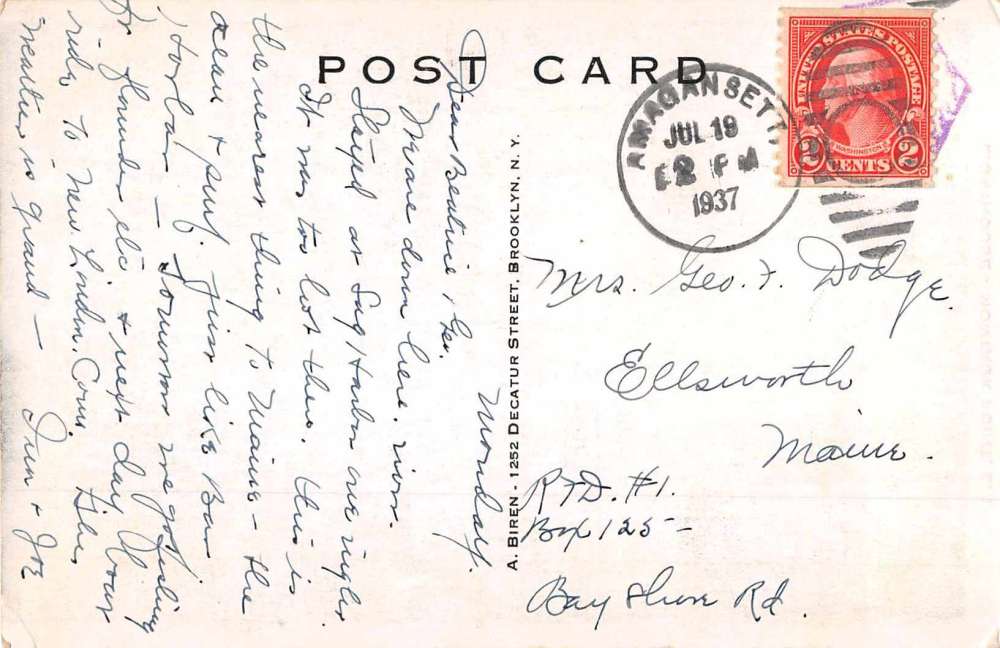 POST CARD
AMAGANSETT
JUL 19
2 PM
1937
UNITED STATES POSTAGE
WASHINGTON
2 CENTS 2
Monday.
Dear Beatrice & Geo.
We are down here. now.
Stayed at Sag Harbor one night
It was too hot there. this is
the nearest thing to Maine – the
ocean & surf. Just like Bar
Harbor – Tomorrow we go fishing
for flounder etc & next day
ride to New London. Conn.
Weather is grand –
& Joe
A. BIREN - 1252 DECATUR STREET, BROOKLYN, N. Y.
Mrs. Geo. F. Dodge.
Ellsworth
Maine.
R.F.D. #1.
Box 125 –
Bay Shore Rd.